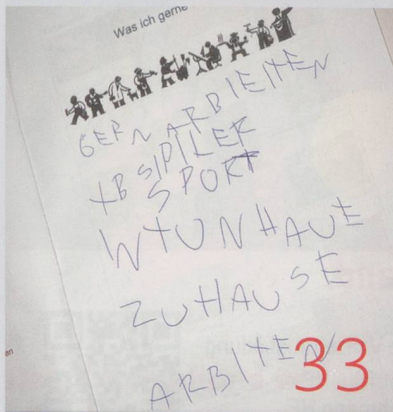 Was ich gerne
GERN ARBIEITEN
XB SIPILER
SPORT
WTUNHAUE
ZUHAUSE
ARBITEN
33
en